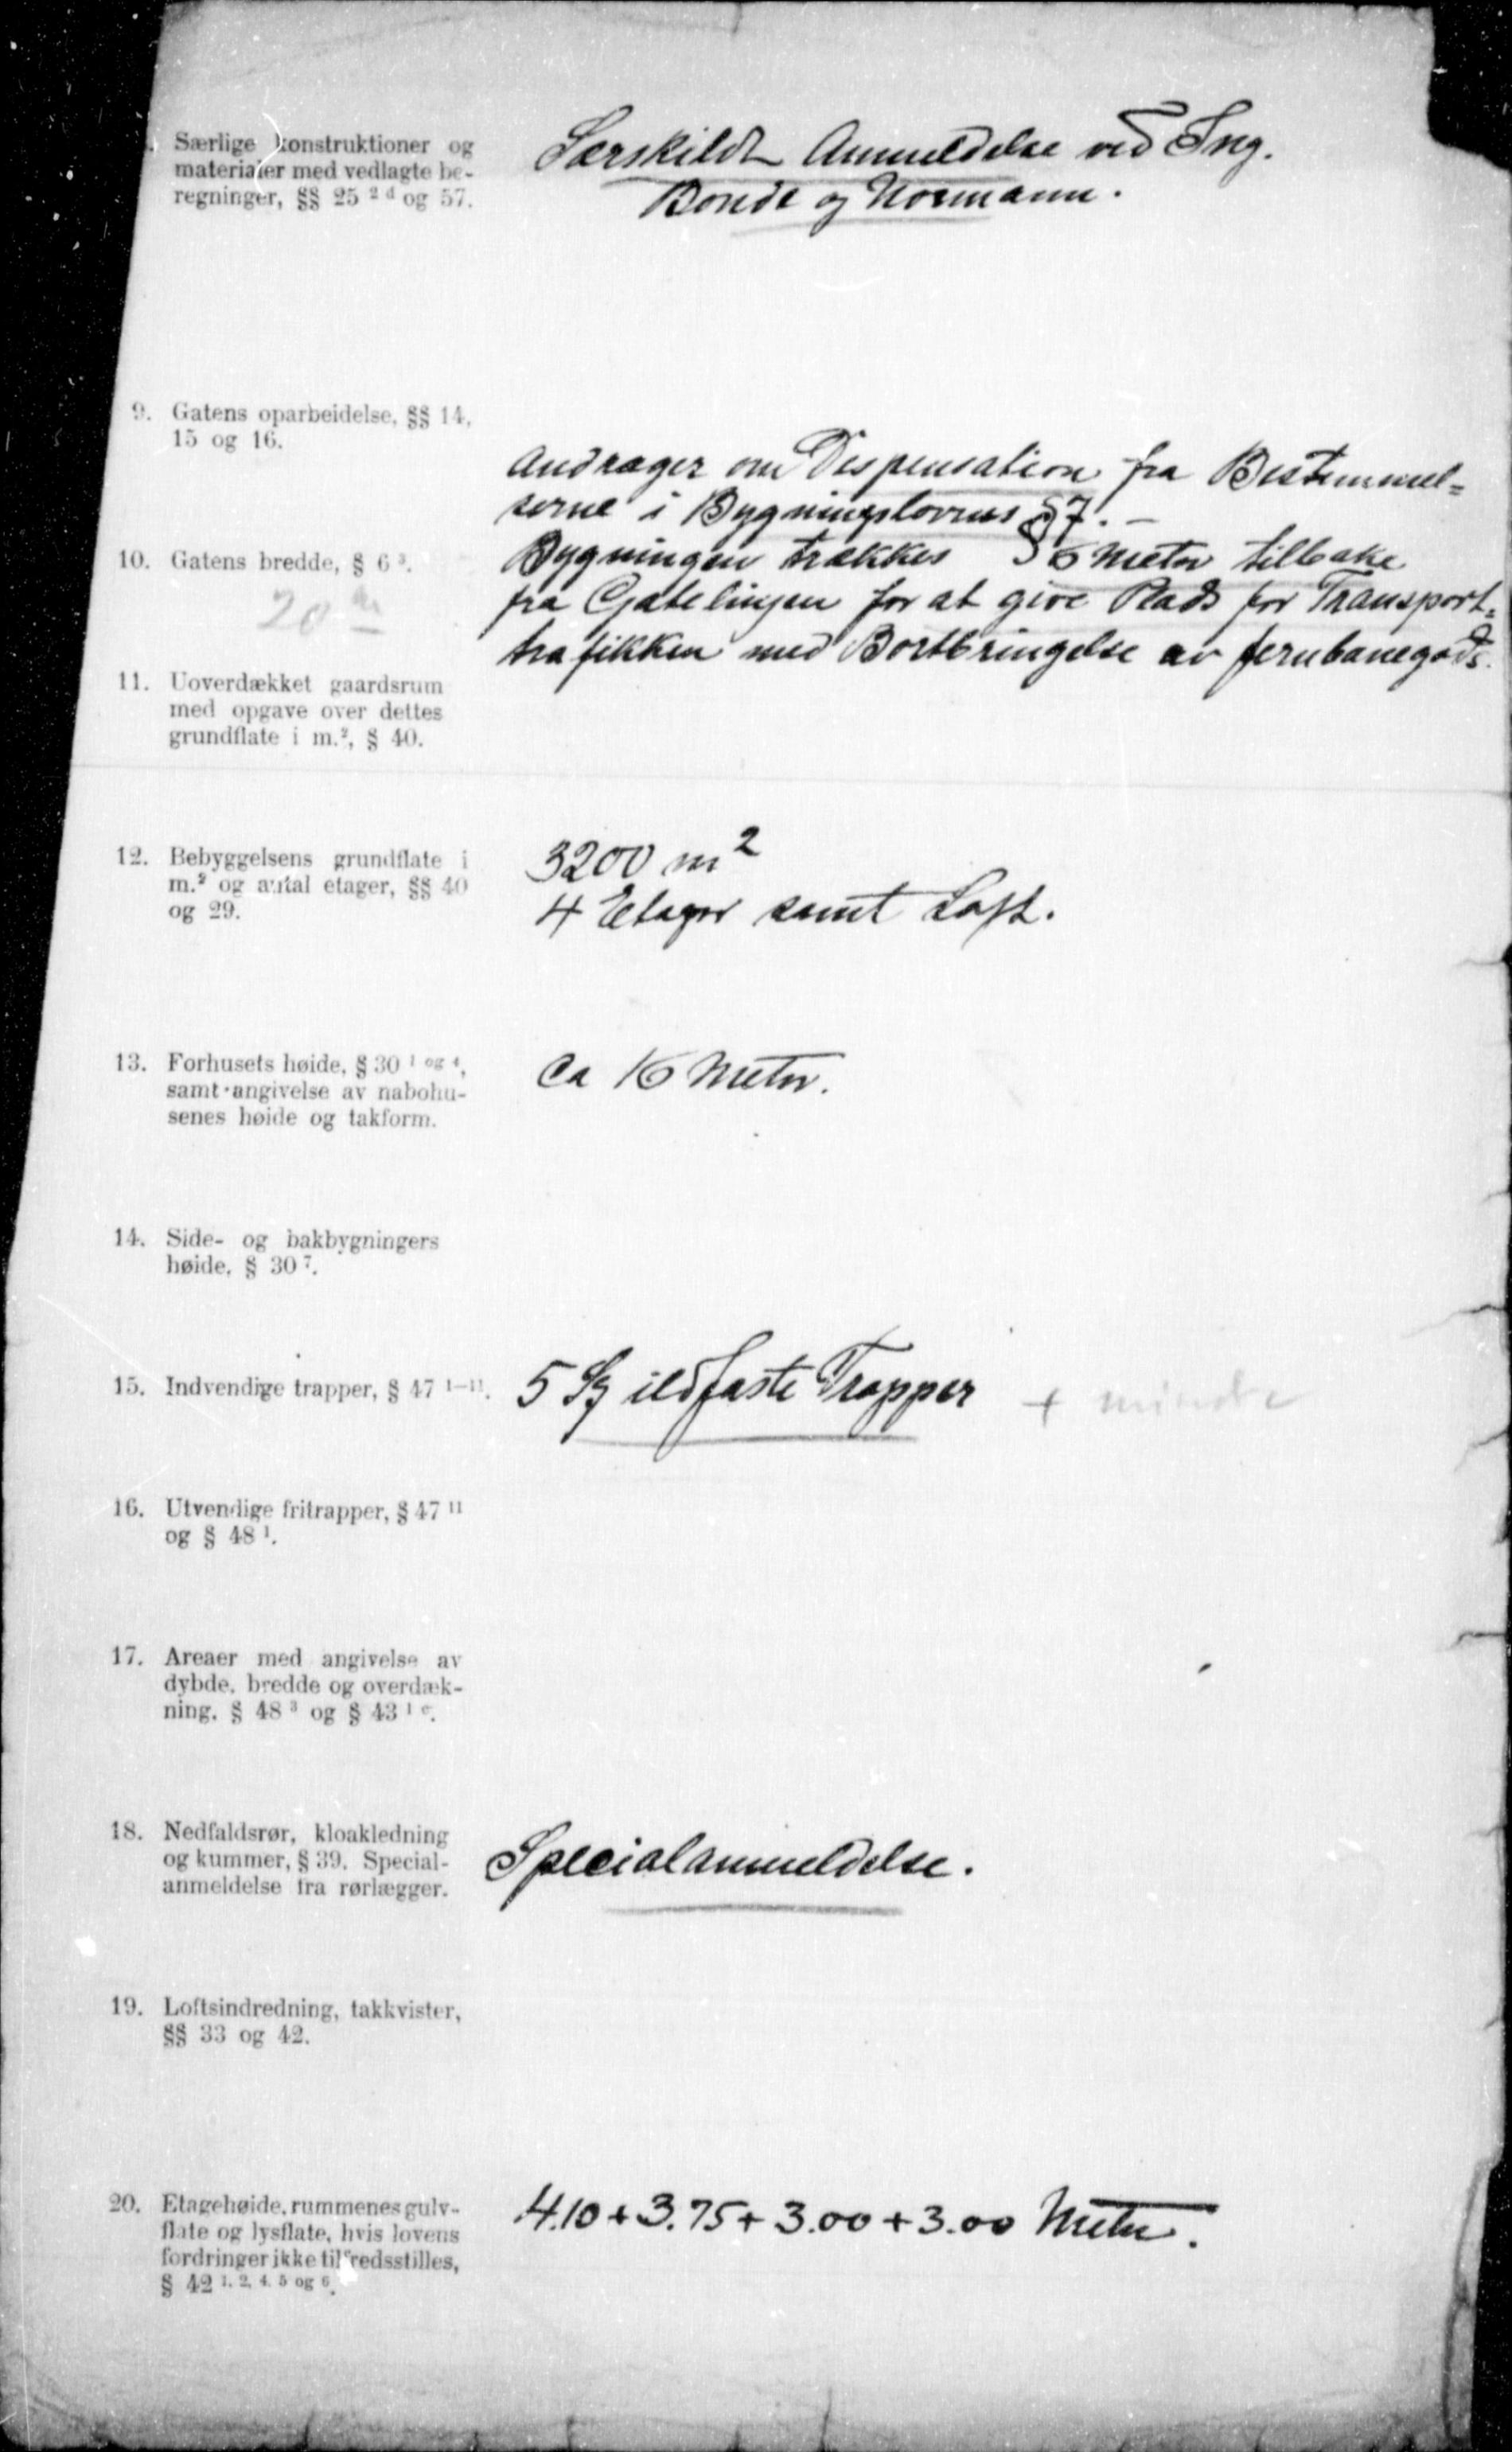 Særlige konstruktioner og
materialer med vedlagte be-
regninger, §§ 25 ² ᵈ og 57.
Særskildt Anmeldelse ved Ing.
Bonde og Normann.
9. Gatens oparbeidelse, §§ 14,
15 og 16.
Andrager om Dispensation fra Bestemmel=
serne i Bygningslovens § 7. –
10. Gatens bredde, § 6 ³.
20 m
Bygningen trækkes 6 Meter tilbake
fra Gatelinjen for at give Plads for Transport=
trafikken med Bortbringelse av jernbanegods.
11. Uoverdækket gaardsrum
med opgave over dettes
grundflate i m.², § 40.
12. Bebyggelsens grundflate i
m.² og antal etager, §§ 40
og 29.
3200 m²
4 Etager samt Loft.
13. Forhusets høide, § 30 ¹ ᵒᵍ ⁴,
samt angivelse av nabohu-
senes høide og takform.
Ca 16 Meter.
14. Side- og bakbygningers
høide, § 30 ⁷.
15. Indvendige trapper, § 47 ¹⁻¹¹.
5 Sz ildfaste Trapper + mindre
16. Utvendige fritrapper, § 47 ¹¹
og § 48 ¹.
17. Areaer med angivelse av
dybde, bredde og overdæk-
ning, § 48 ³ og § 43 ¹ ᶜ.
18. Nedfaldsrør, kloakledning
og kummer, § 39. Special-
anmeldelse fra rørlægger.
Specialanmeldelse.
19. Loftsindredning, takkvister,
§§ 33 og 42.
20. Etagehøide, rummenes gulv-
flate og lysflate, hvis lovens
fordringer ikke tilfredsstilles,
§ 42 ¹· ²· ⁴· ⁵ ᵒᵍ ⁶.
4.10 + 3.75 + 3.00 + 3.00 Meter.